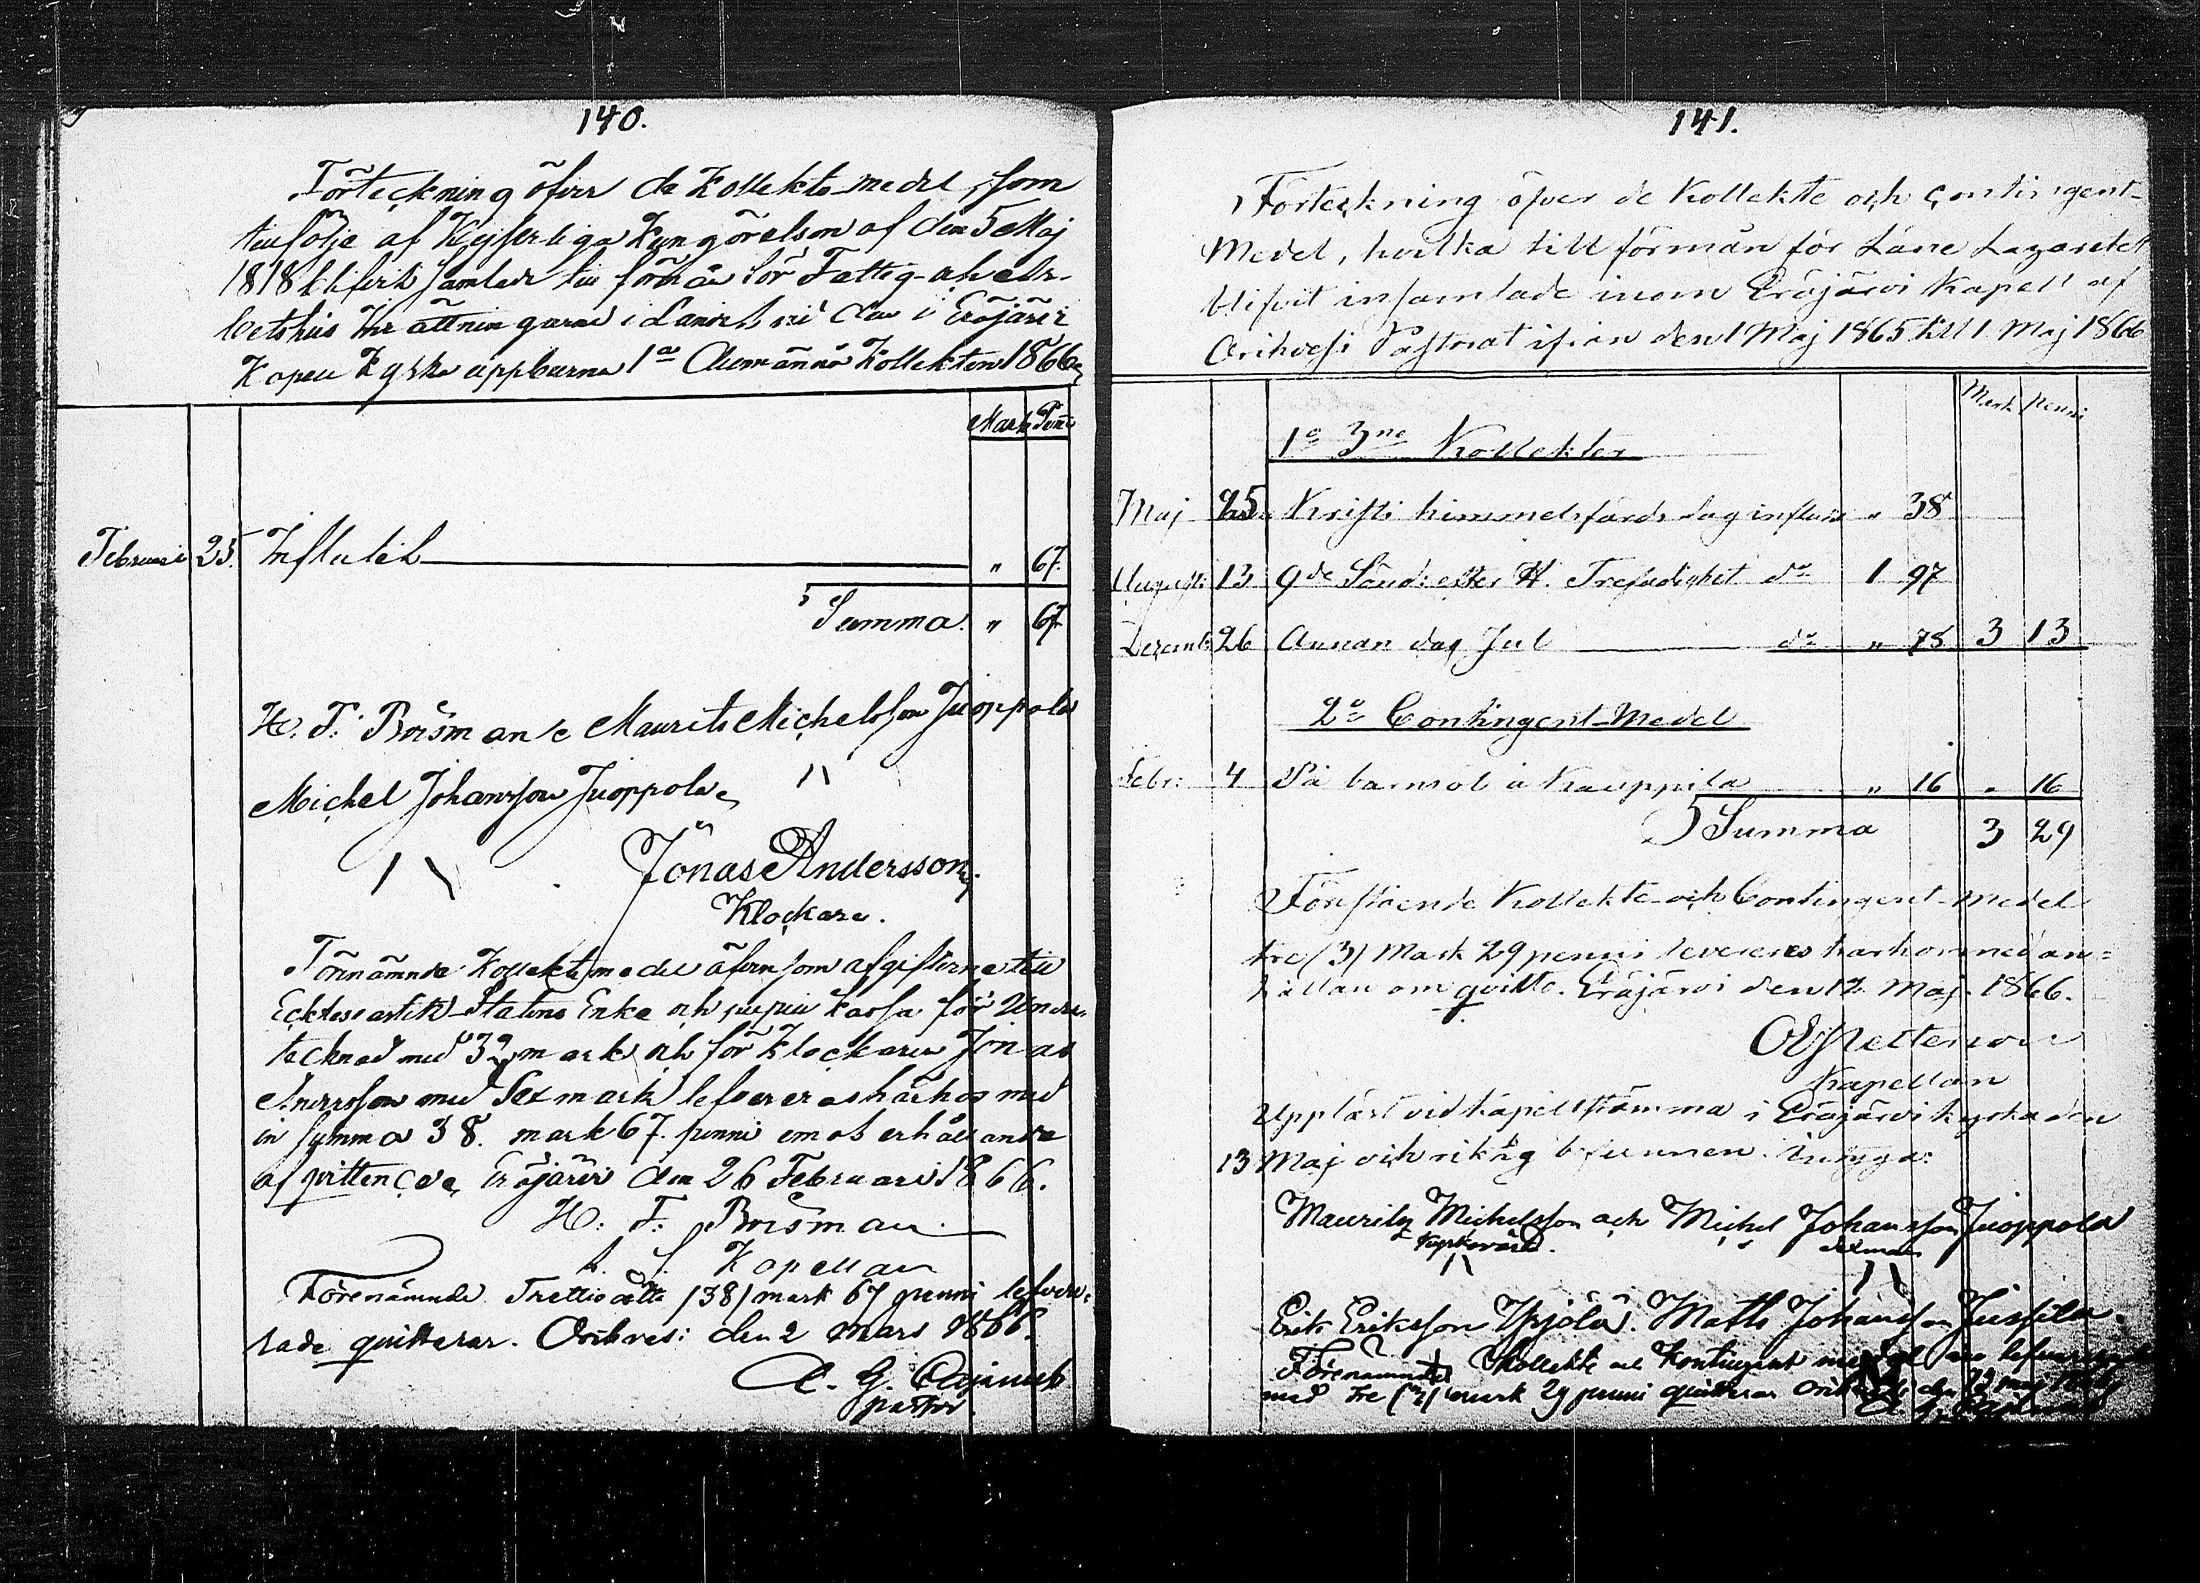 140.
Förteckning öfver de Kollekte-medel, som
till följe af Kejserliga Kungörelsen af den 5 Maj
1818 blifvit samlade till förmån för Fattig- och Ar-
betshus Inrättningarne i Landet vid den i Eräjärvi
Kapell Kyrka uppburna 1a Allmänna Kollekten 1866
Mark Penni
Februarii 25. Influtit " 67.
Summa " 67.
H. F. Boisman Maurits Michelsson Juoppola
Michel Johansson Juoppola
Jonas Andersson
Klockare.
Förnämnde Kollektmedel äfvensom afgifterne till
Ecklesiastik-Statens Enke och pupill kassa för Under-
tecknad med 32 mark och för Klockaren Jonas
Andersson med Sex mark lefvereras härhos med
in summa 38. mark 67. penni emot erhållande
af qvittence, Eräjärvi den 26 Februari 1866.
H. F. Boisman
Kapellan
Förenämnde Trettioåtta (38) mark 67 penni lefvere-
rade quitterar. Orihvesi den 2 Mars 1866.
pastor.
141.
Förteckning öfver de Kollekte och Contingent-
Medel, hvilka till förmån för Läne Lazarettet
blifvit insamlade inom Eräjärvi Kapell af
Orihvesi Pastorat ifrån den 1 Maj 1865 till 1 Maj 1866
Mark penni
1o 3ne Kollekter
Maj 25 Kristi himmelsfärds dag influtit " 38
Augusti 13 9de Sönd: efter H. Trefaldighet do 1 97
Decemb: 26 Annan dag Jul do " 78 3 13
2o Contingent-Medel
Febr: 4 På barnsöl å Kauppila " 16 " 16
Summa 3 29
Förestående Kollekte- och Contingent-Medel
tre (3) Mark 29 penni levereres härhos mot an-
hållan om qvitto. Eräjärvi den 12 Maj 1866.
Kapellan
Uppläst vid Kapellstämma i Eräjärvi kyrka den
13 Maj och riktig befunnen intyga:
Maurits Michelsson och Michel Johansson Juoppola
Kyrkovärd. Sexman
Erik Eriksson Yrjölä. Matts Johansson Jussila.
Förenämnde Kollekte och Kontingent
med tre (3) mark 29 penni quitterar